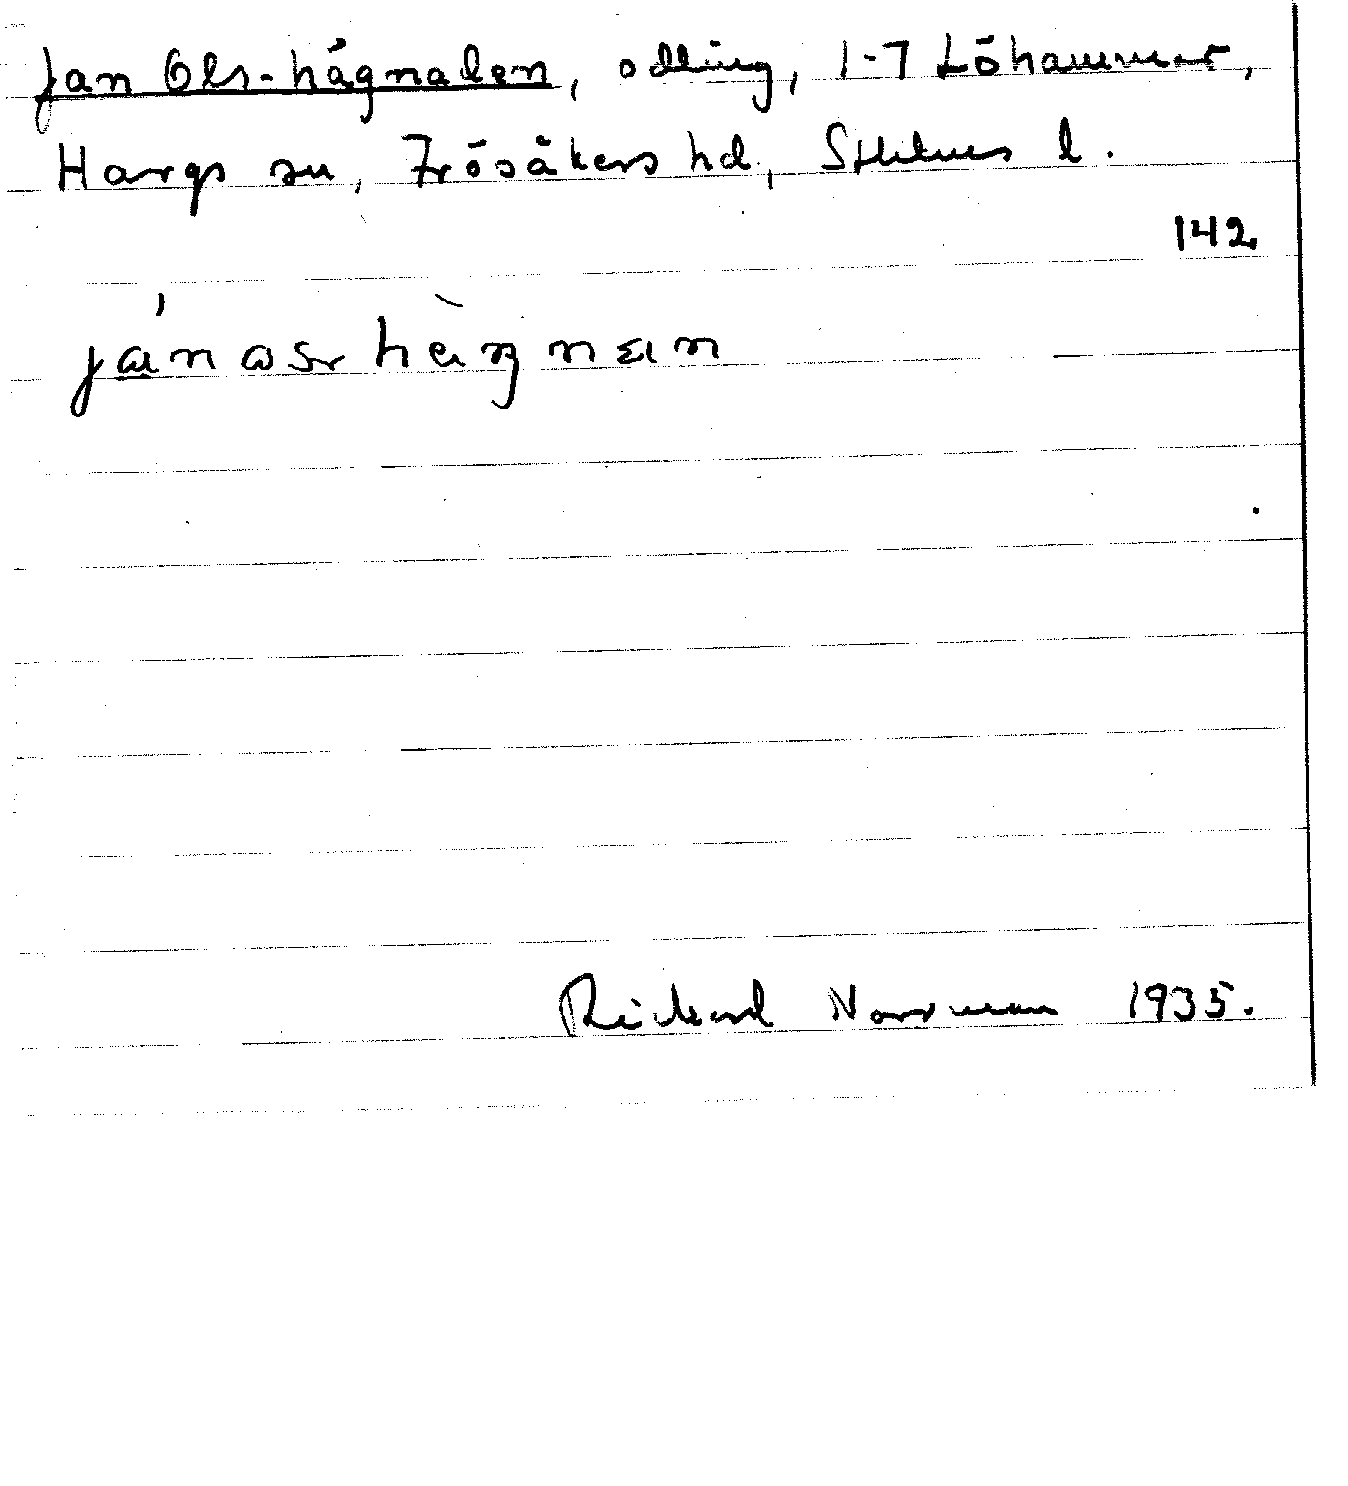 Jan Ols-hågnaden, odling, 1-7 Löhammar,
Hargs sn, Frösåkers hd, Sthlms l.
142
Rickard Norrman 1935.